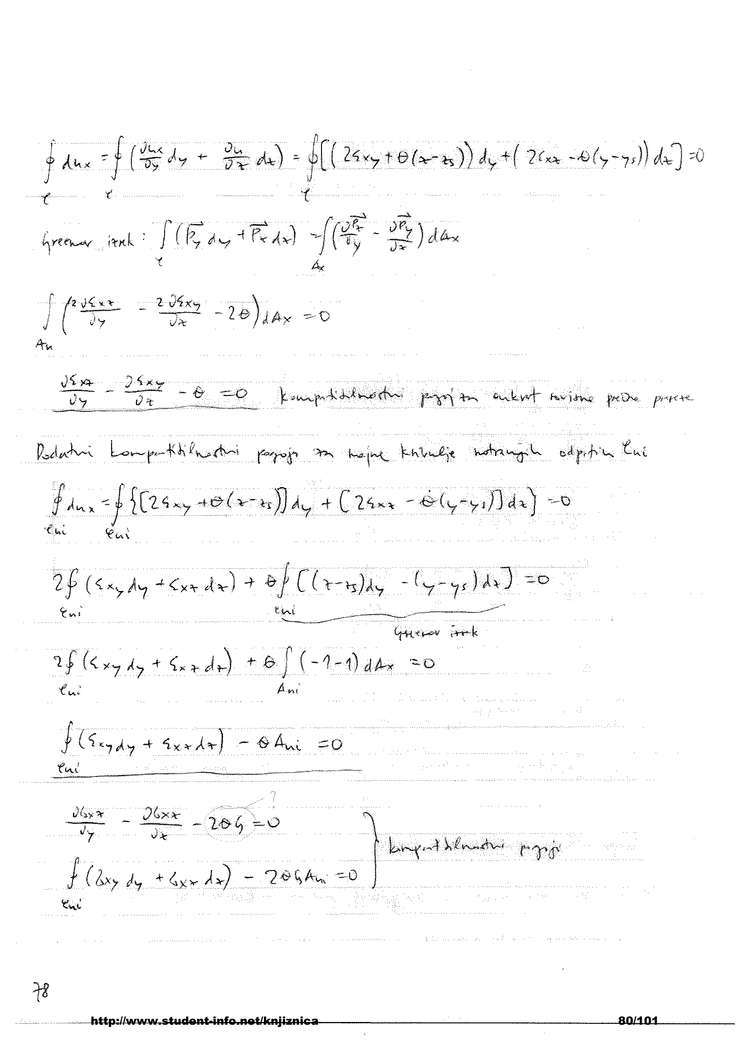 ∮_𝓁 du_x = ∮_𝓁 (∂u_x/∂y dy + ∂u/∂z dz) = ∮_𝓁 [(2ε_xy + θ(z-z_s)) dy + (2ε_xz - θ(y-y_s)) dz] = 0
Greenov izrek: ∫_𝓁 (P⃗_y dy + P⃗_z dz) = ∫_Ax (∂P⃗_z/∂y - ∂P⃗_y/∂z) dA_x
∫_Ax (2∂ε_xz/∂y - 2∂ε_xy/∂z - 2θ) dA_x = 0
∂ε_xz/∂y - ∂ε_xy/∂z - θ = 0 kompatibilnostni pogoj za enkrat
Dodatni kompatibilnostni pogoji za mejne krivulje notranjih odprtin 𝓁ni
∮_𝓁ni du_x = ∮_𝓁ni {[2ε_xy + θ(z-z_s)] dy + [2ε_xz - θ(y-y_s)] dz} = 0
2∮_𝓁ni (ε_xy dy + ε_xz dz) + θ∮_𝓁ni [(z-z_s) dy - (y-y_s) dz] = 0
Greenov izrek
2∮_𝓁ni (ε_xy dy + ε_xz dz) + θ∫_Ani (-1-1) dA_x = 0
∮_𝓁ni (ε_xy dy + ε_xz dz) - θA_ni = 0
?
∂σ_xz/∂y - ∂σ_xx/∂z - 2θG = 0
kompatibilnostni pogoji
∮_𝓁ni (σ_xy dy + σ_xz dz) - 2θGA_ni = 0
78
http://www.student-info.net/knjiznica 80/101